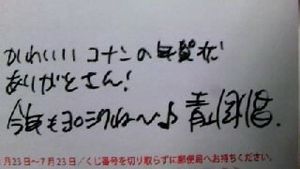 かわいいコナンの年賀状
ありがとさん!
今年もヨロシクね〜♪ 青山剛昌.
月23日〜7月23日/くじ番号を切り取らずに郵便局へお持ちください。